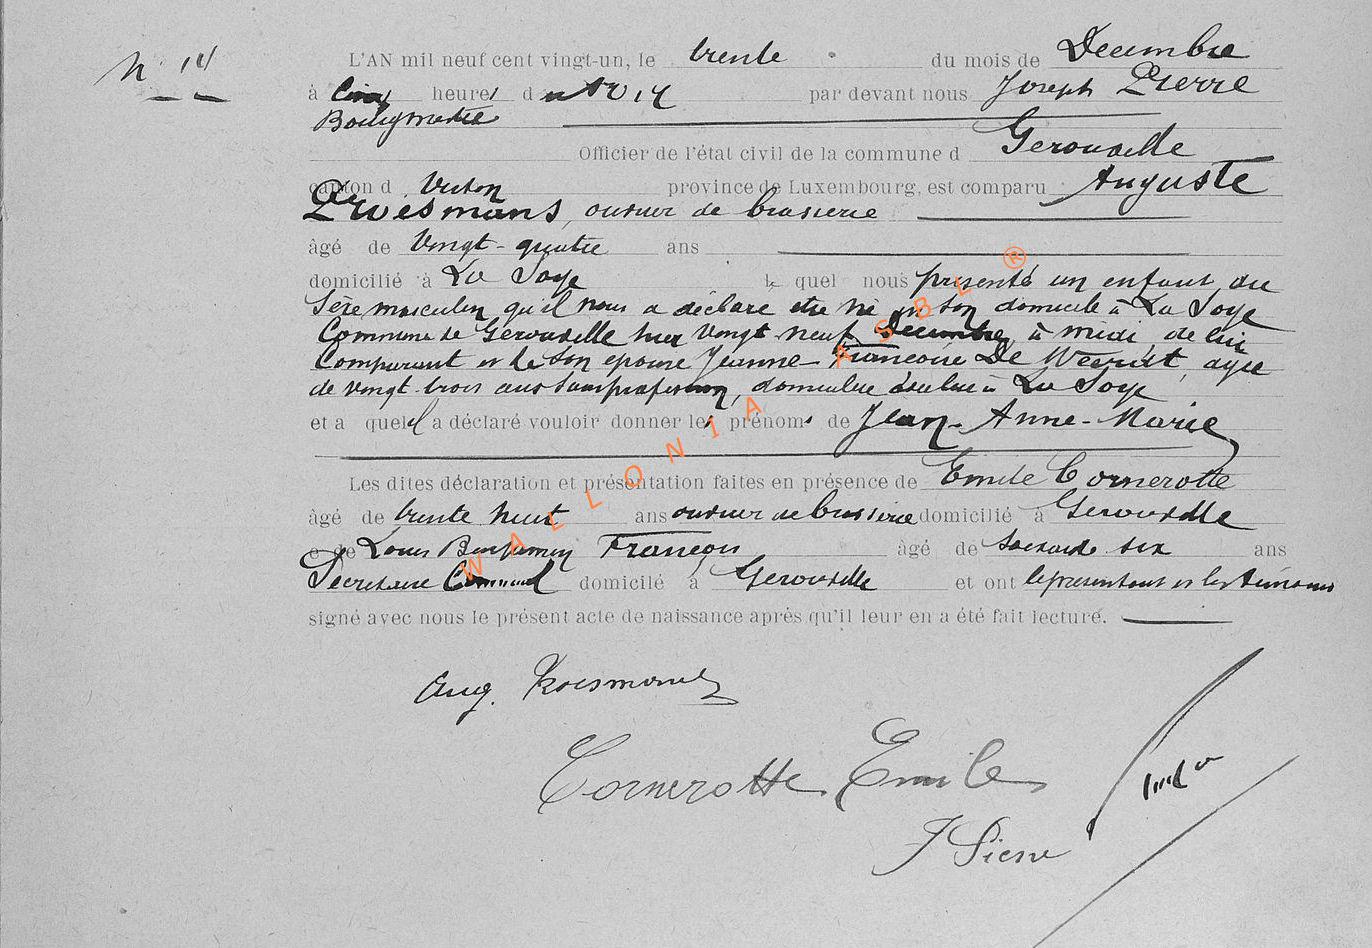 N° 14
L'AN mil neuf cent vingt-un, le trente du mois de Decembre
à Cinq heures d par devant nous Joseph Pierre
Bourgmestre
Officier de l'état civil de la commune d Gerouville
canton d Virton province de Luxembourg, est comparu Auguste
ouvrier de brasserie
âgé de Vingt-quatre ans
domicilié à La Soye le quel nous présenté un enfant du
Sexe masculin qu'il nous a déclaré etre né en son domicile à La Soye
Commune de Gerouville hier Vingt neuf Decembre, à midi, de lui
Comparant et de son epouse Jeanne-Francoise De agee
de vingt-trois ans sans profession, domiciliée à La Soye
et a quel il a déclaré vouloir donner les prénoms de Jean-Anne-Marie
Les dites déclaration et présentation faites en présence de Emile Cornerotte
âgé de trente huit ans ouvrier de brasserie domicilié à Gerouville
e de Louis Benjamin François âgé de Soixante six ans
Secretaire Communal domicilé à Gerouville et ont le présentant et les témoins
signé avec nous le présent acte de naissance après qu'il leur en a été fait lecture.
WALLONIA ASBL ®
Aug.
Cornerotte Emile
J Pierre